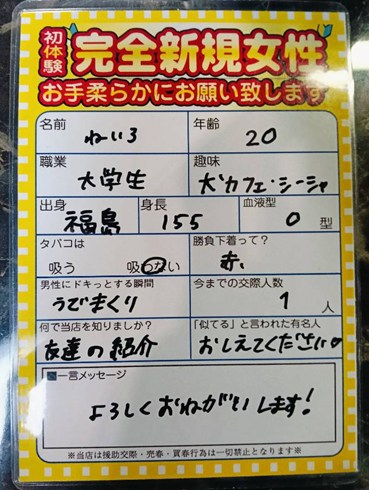 初体験 完全新規女性
お手柔らかにお願い致します
名前 ねいろ 年齢 20
職業 大学生 趣味 犬カフェ・シーシャ
出身 福島 身長 155 血液型 O 型
タバコは 吸う 吸わない 勝負下着って? 赤、
男性にドキっとする瞬間 うでまくり 今までの交際人数 1 人
何で当店を知りましたか? 友達の紹介 「似てる」と言われた有名人 おしえてください。
一言メッセージ
よろしくおねがいします!
※当店は援助交際・売春・買春行為は一切禁止となります※